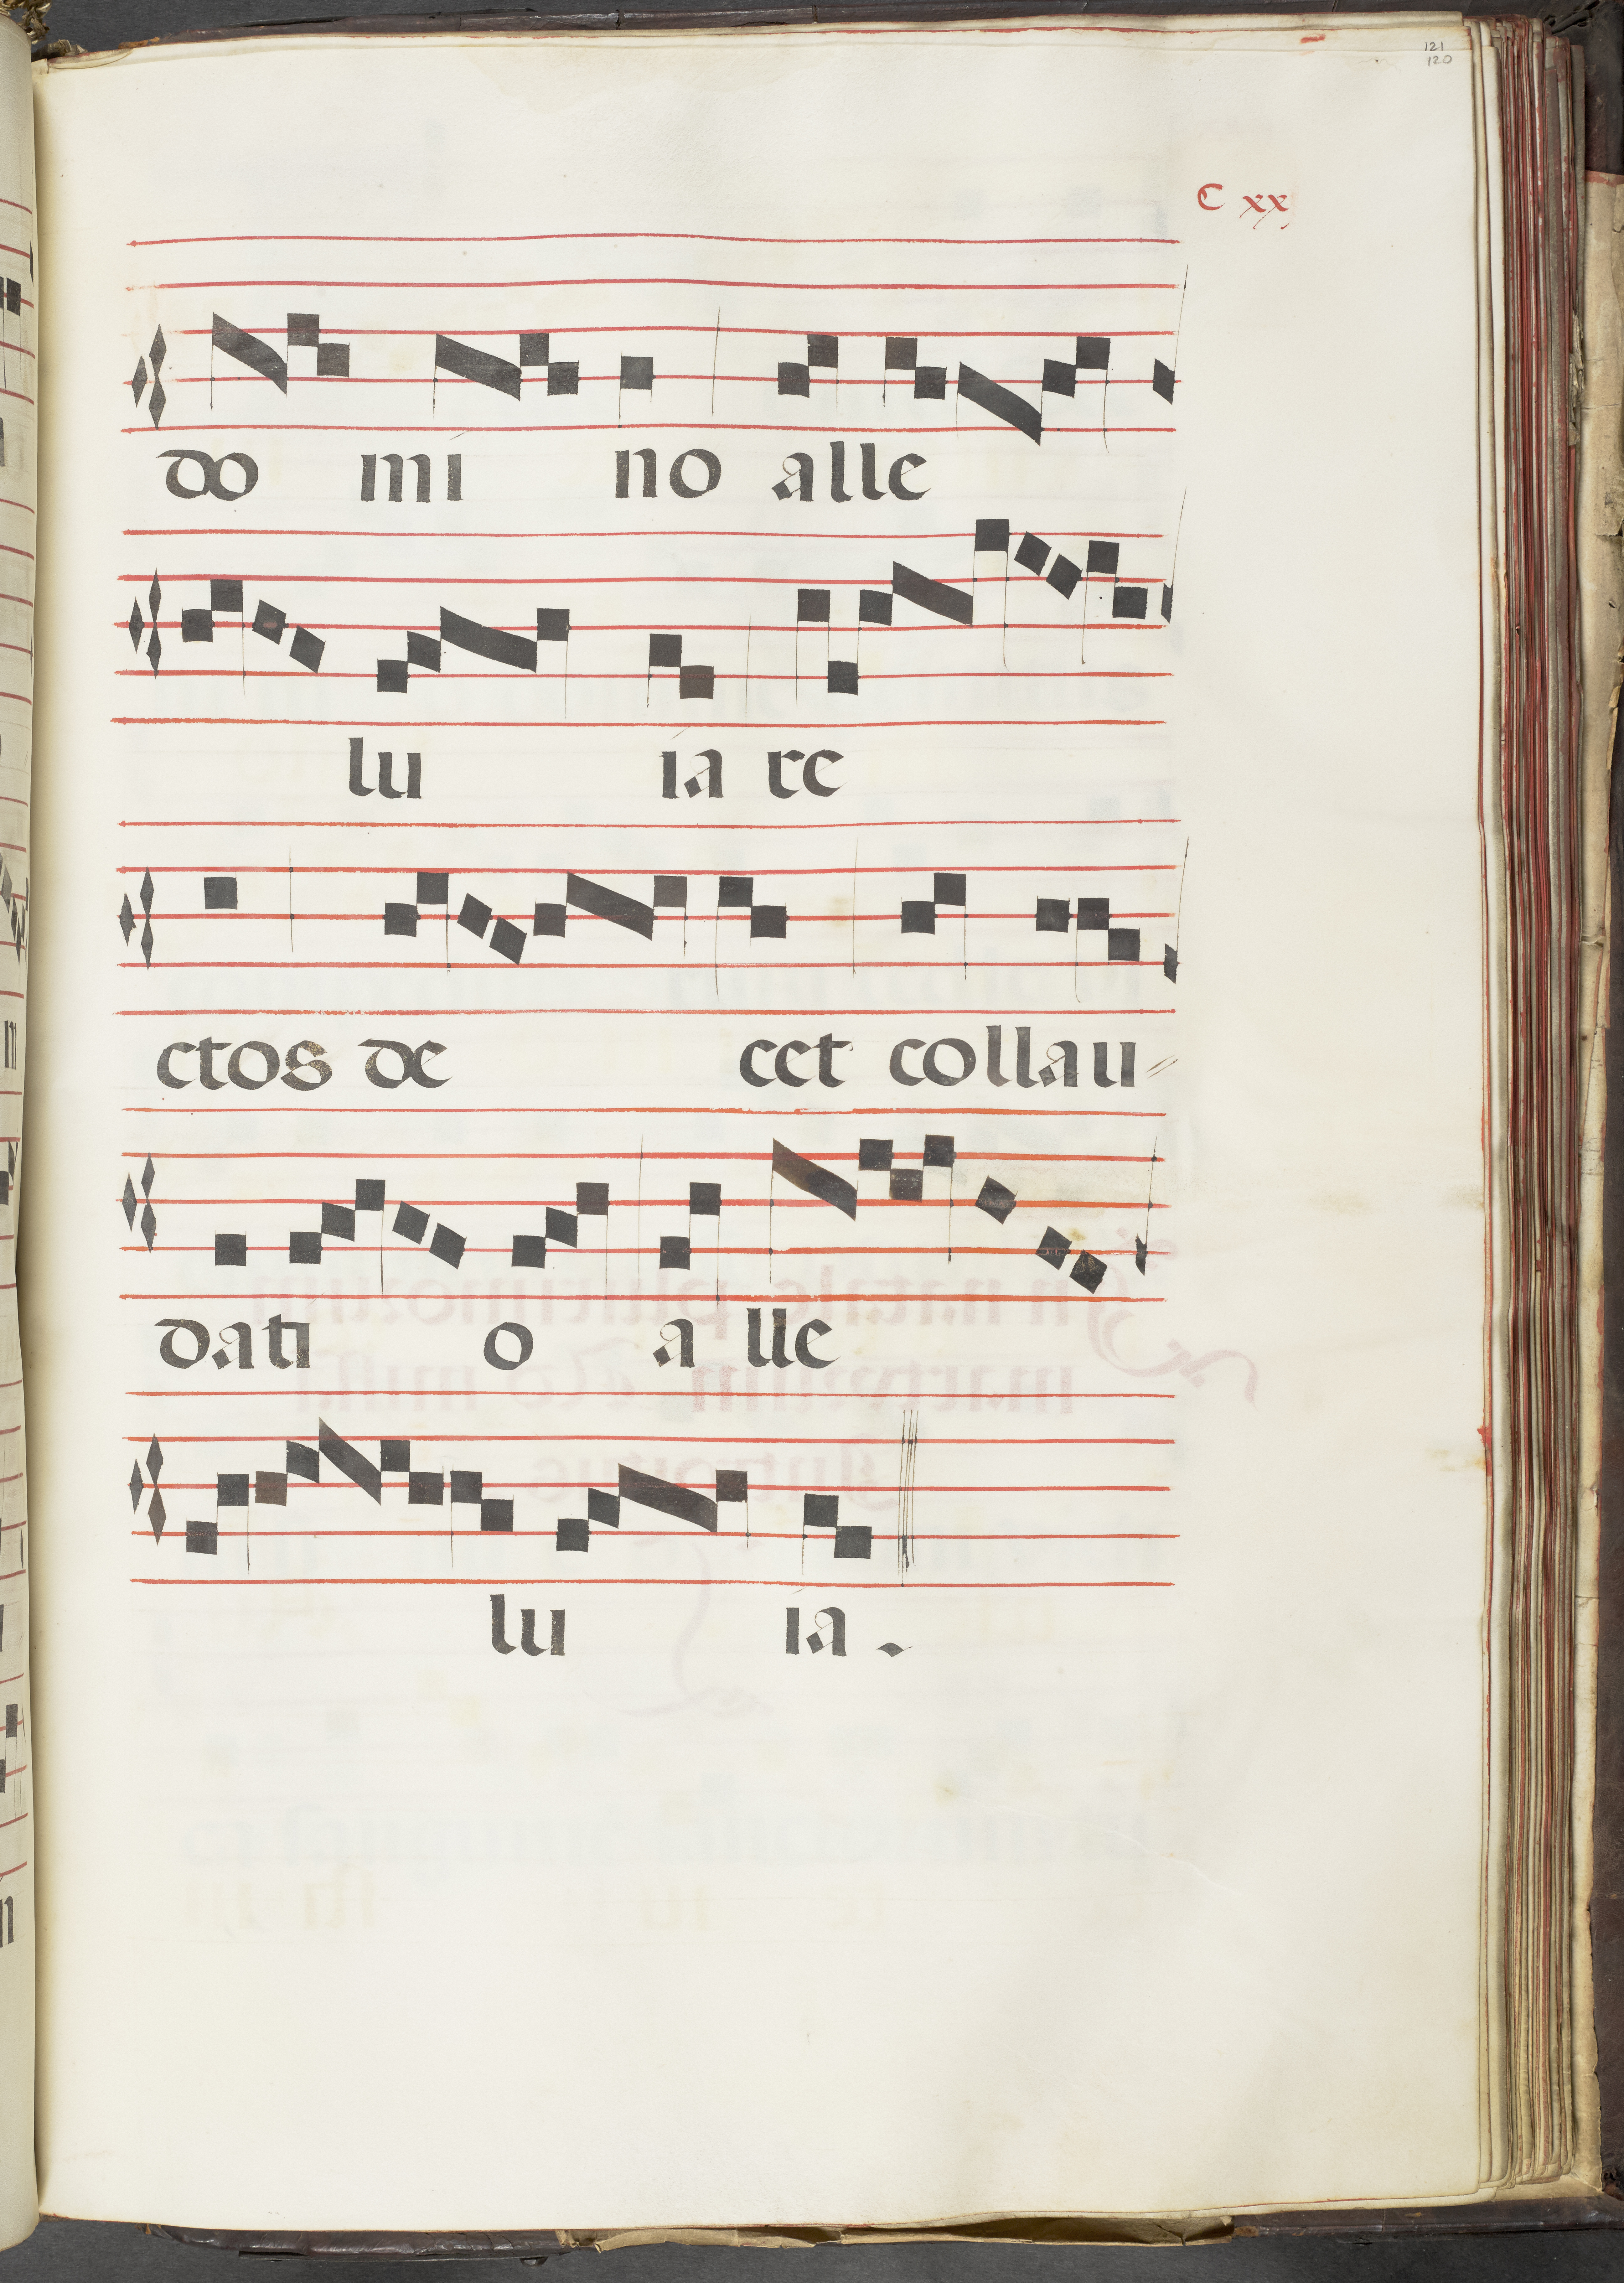 121
120
C xx
do mi no alle
lu ia re
ctos de cet collau
dati o a lle
lu ia .